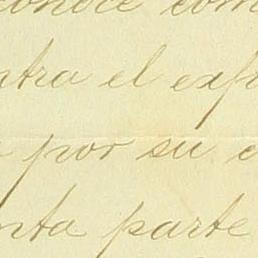 conoce com
ntra el exp
por su c
nta parte